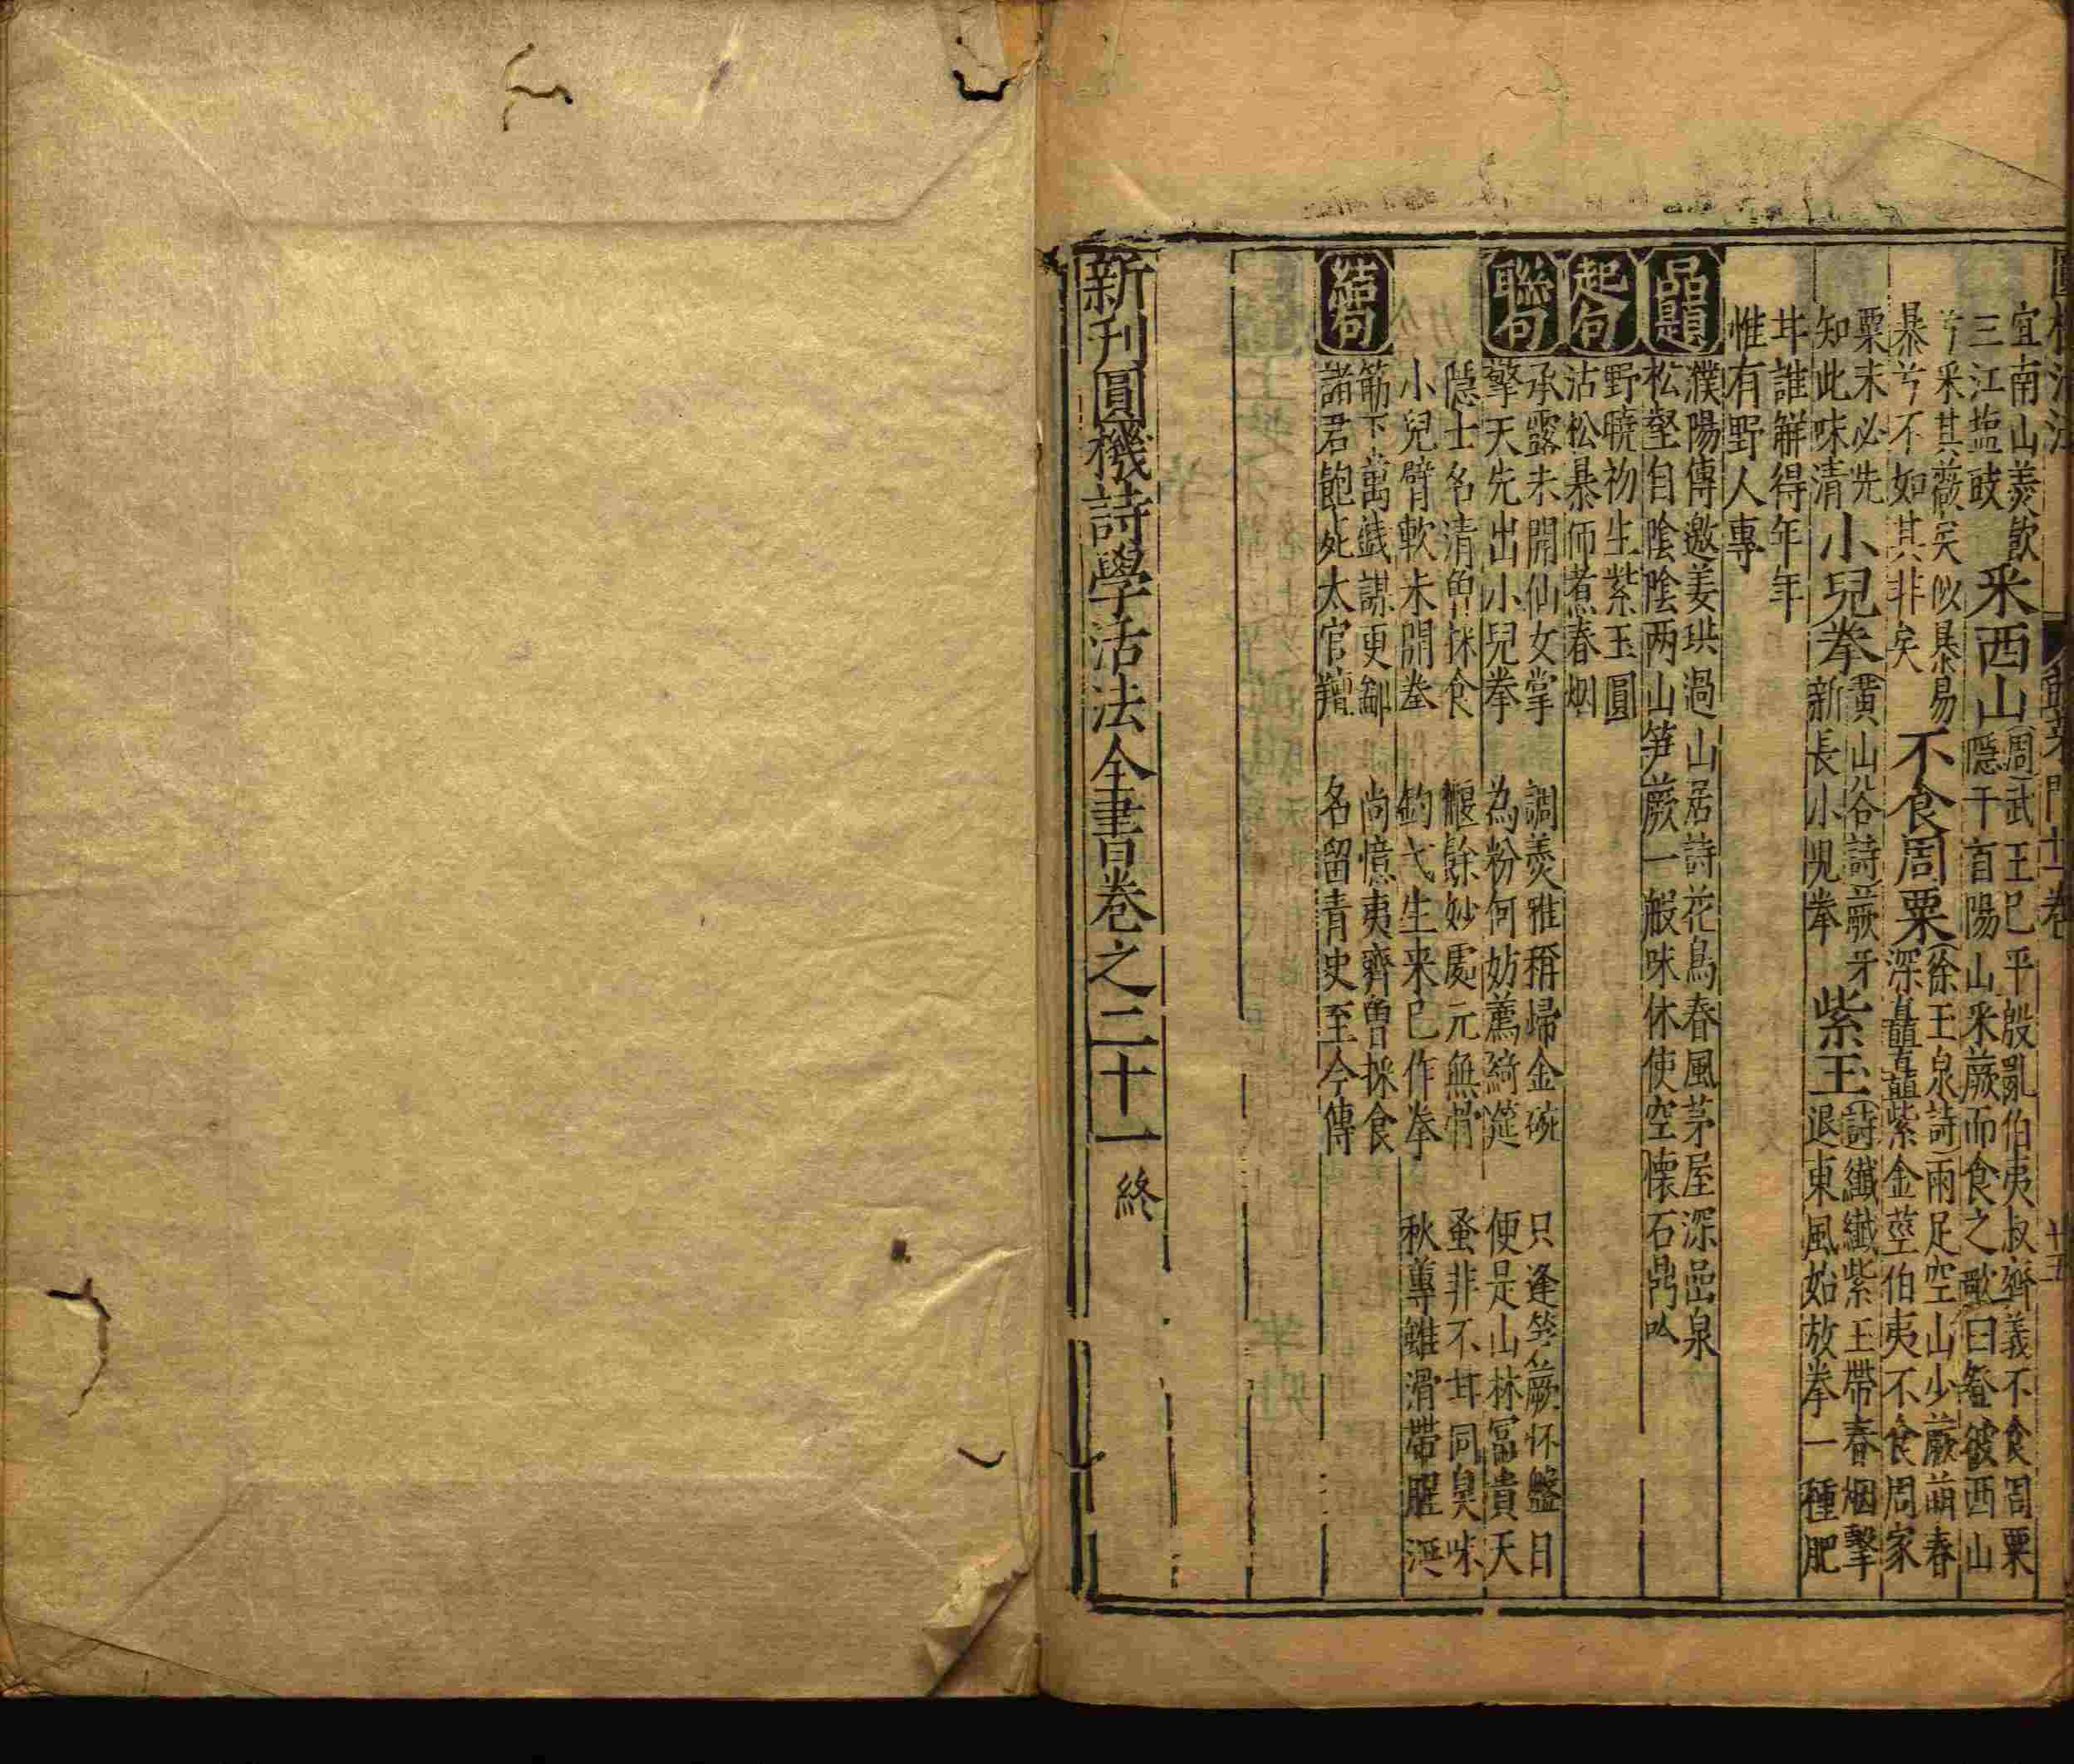 宜南山羡歃
三江塩豉
采西山
周武王已平殷亂伯夷叔齊義不食周粟
隱于首陽山采蕨而食之歌曰登彼西山
兮采其薇矣似暴易
暴兮不如其非矣
不食周粟
徐玉泉詩雨足空山少蕨萌春
深矗矗紫金莖伯夷不食周家
粟末必先
知此味清
小兒拳
黄山谷詩蕨牙
新長小兒拳
紫玉
詩纖纖紫玉帶春烟擊
退東風始放拳一種肥
甘誰解得年年
惟有野人專
品題
濮陽傳邀姜珙過山居詩花鳥春風茅屋深嵒泉
松壑自陰陰两山笋蕨一般味休使空懐石鼎吟
起句
野曉初生紫玉圓
沾松暴师煮春烟
聯句
承露未開仙女掌 調羡雅稱歸金碗 只逢笋蕨怀盤日
擎天先出小兒拳 為粉何妨薦綺筵 便是山林冨貴天
隱士名清曽採食 餱餘妙處元無骨 蚤非不甘同臭味
小兒臂軟未開拳 釣弋生来已作拳 秋蓴雖滑帶腥涎
結句
筯下萬錢謀更鄙 尚憶夷齊曽採食
諸君飽死太官羶 名留青史至今傳
新刊圓機詩學活法全書卷之二十一終